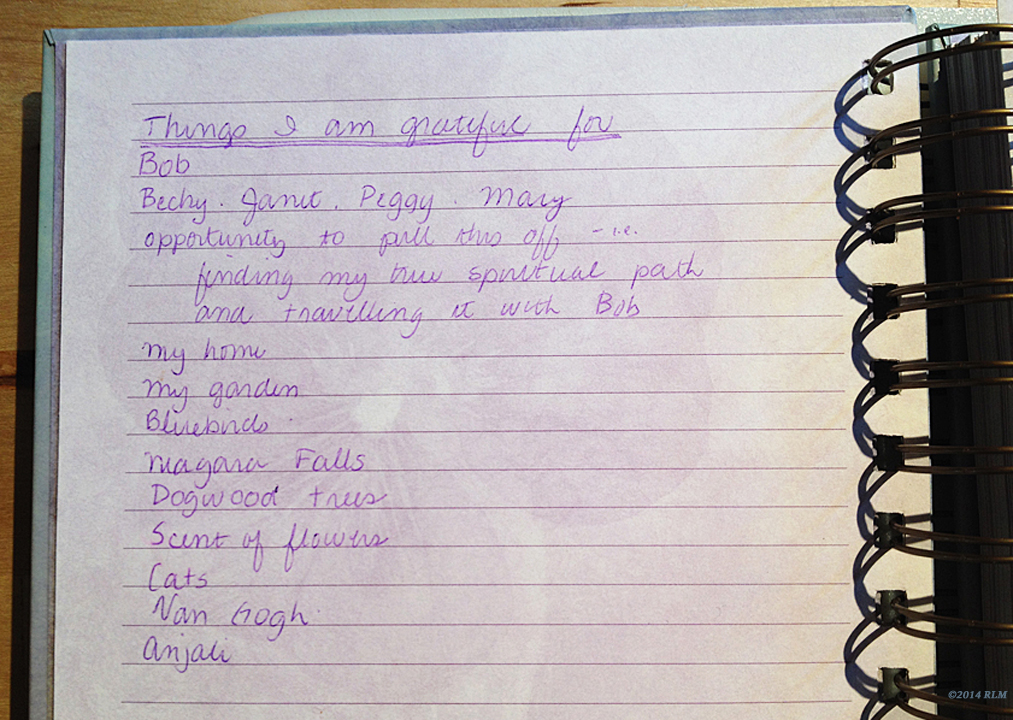 Things I am grateful for
Bob
Bechy. Janet. Peggy. Mary
opportunity to pull this off - i.e.
finding my true spiritual path
and travelling it with Bob
my home
my garden
Bluebirds
Niagara Falls
Dogwood trees
Scent of flowers
Cats
Van Gogh
Anjali
©2014 RLM